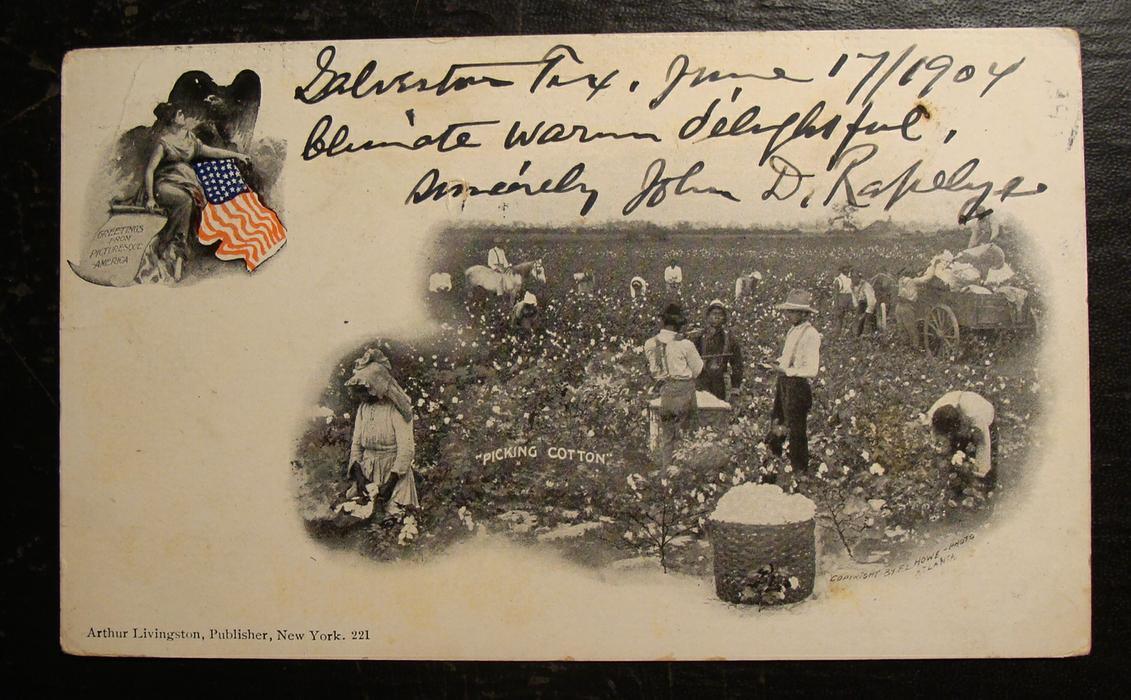 Galveston Tex. June 17/1904
Climate warm delightful,
sincerely John D. Rapelye
GREETINGS
FROM
PICTURESQUE
AMERICA
"PICKING COTTON"
COPYRIGHT BY F.L. HOWE - PHOTO
ATLANTA
Arthur Livingston, Publisher, New York. 221